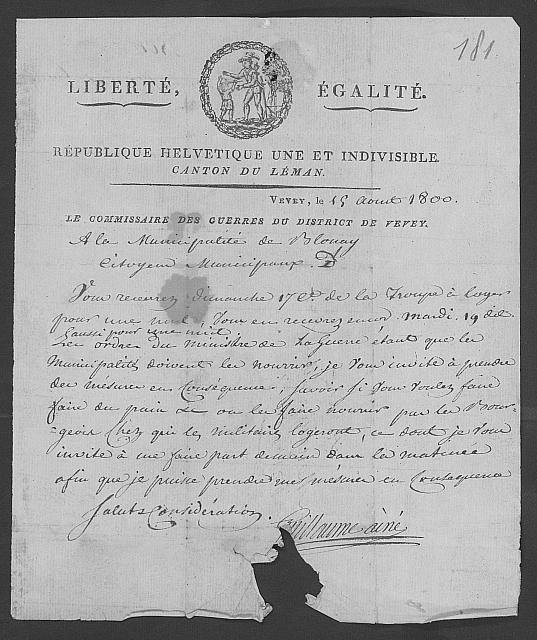 181.
LIBERTÉ, ÉGALITÉ.
RÉPUBLIQUE HELVETIQUE UNE ET INDIVISIBLE.
CANTON DU LÉMAN.
VEVEY, le 15 Aout 1800.
LE COMMISSAIRE DES GUERRES DU DISTRICT DE VEVEY.
A la Municipalité de Blonay
Citoyens Municipaux
Vous recevrez dimanche 17 Ct de la Troupe à loger
pour une nuit, Vous en recevrez encor mardi 19 dit
& aussi pour une nuit
Les ordres du Ministre de la Guerre étant que les
Municipalités doivent les nourrir, je vous invite à prendre
des mesures en Conséquence, Savoir si Vous voulez faire
faire du pain & ou les faire nourrir par les Bour-
geois chez qui les militaires logeront, ce dont je Vous
invite à me faire part demain dans la matinée
afin que je puisse prendre mes mesures en Conséquence
Salut & Considération.
Guillaume ainé